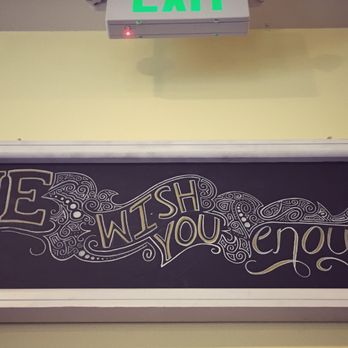 EXIT
WE WISH YOU enou